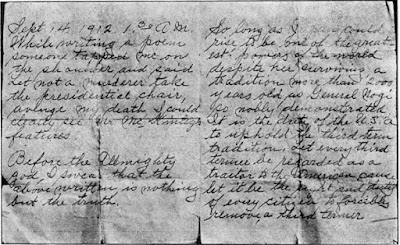 Sept 14 1912 1.30 A M.
While writing a poem
someone tapped me on
the shoulder and said
let not a murderer take
the presidential chair,
avenge my death I could
clearly see Mr.
features

Before the Almighty
god I swear that the
above written is nothing
but the truth.

So long as Japan could
rise to be one of the great
est powers of the world
despite her surviving a
tradition more than 2000
years old as General Nogi
so nobly demonstrated
it is the duty of the U.S.A
to uphold the third term
tradition Let every third
termer be regarded as a
traitor to the American cause
let it be the right and duty
of every citizen to forcibly
remove a third termer